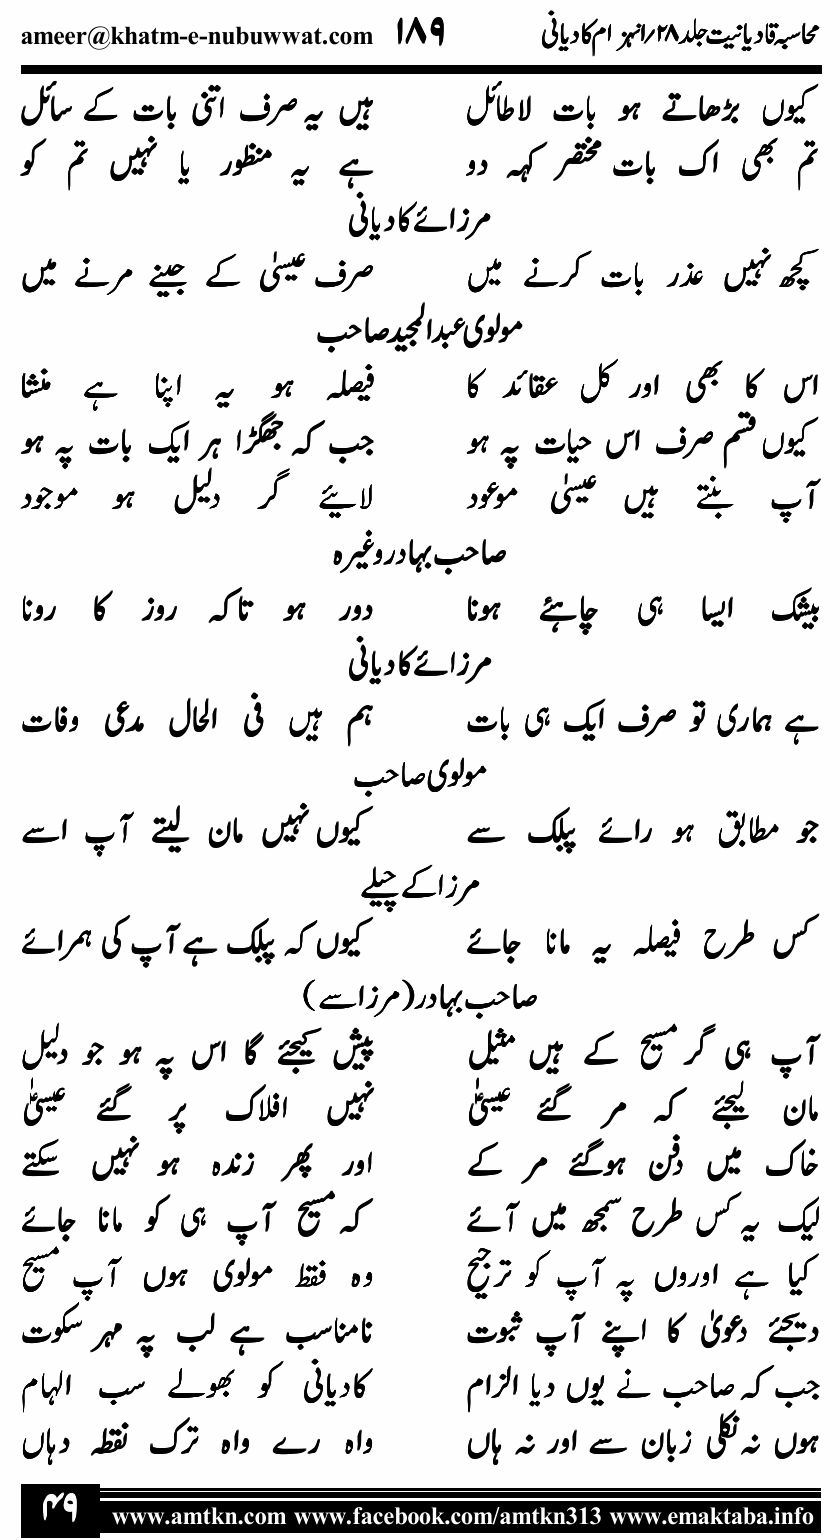 محاسبہ قادیانیت جلد ۲۸/انہزام کادیانی ۱۸۹ ameer@khatm-e-nubuwwat.com
کیوں بڑھاتے ہو بات لاطائل ہیں یہ صرف اتنی بات کے سائل
تم بھی اک بات مختصر کہہ دو ہے یہ منظور یا نہیں تم کو
مرزائے کادیانی
کچھ نہیں عذر بات کرنے میں صرف عیسیٰ کے جینے مرنے میں
مولوی عبدالمجید صاحب
اس کا بھی اور کل عقائد کا فیصلہ ہو یہ اپنا ہے منشا
کیوں قسم صرف اس حیات پہ ہو جب کہ جھگڑا ہر ایک بات پہ ہو
آپ بنتے ہیں عیسیٰ موعود لایئے گر دلیل ہو موجود
صاحب بہادر وغیرہ
بیشک ایسا ہی چاہئے ہونا دور ہو تاکہ روز کا رونا
مرزائے کادیانی
ہے ہماری تو صرف ایک ہی بات ہم ہیں فی الحال مدعی وفات
مولوی صاحب
جو مطابق ہو رائے پبلک سے کیوں نہیں مان لیتے آپ اسے
مرزا کے چیلے
کس طرح فیصلہ یہ مانا جائے کیوں کہ پبلک ہے آپ کی ہمرائے
صاحب بہادر (مرزا سے)
آپ ہی گر مسیح کے ہیں مثیل پیش کیجئے گا اس پہ ہو جو دلیل
مان لیجئے کہ مر گئے عیسیٰ نہیں افلاک پر گئے عیسیٰ
خاک میں دفن ہوگئے مر کے اور پھر زندہ ہو نہیں سکتے
لیک یہ کس طرح سمجھ میں آئے کہ مسیح آپ ہی کو مانا جائے
کیا ہے اوروں پہ آپ کو ترجیح وہ فقط مولوی ہوں آپ مسیح
دیجئے دعویٰ کا اپنے آپ ثبوت نامناسب ہے لب پہ مہر سکوت
جب کہ صاحب نے یوں دیا الزام کادیانی کو بھولے سب الہام
ہوں نہ نکلی زبان سے اور نہ ہاں واہ رے واہ ترک نقطہ دہاں
۴۹ www.amtkn.com www.facebook.com/amtkn313 www.emaktaba.info